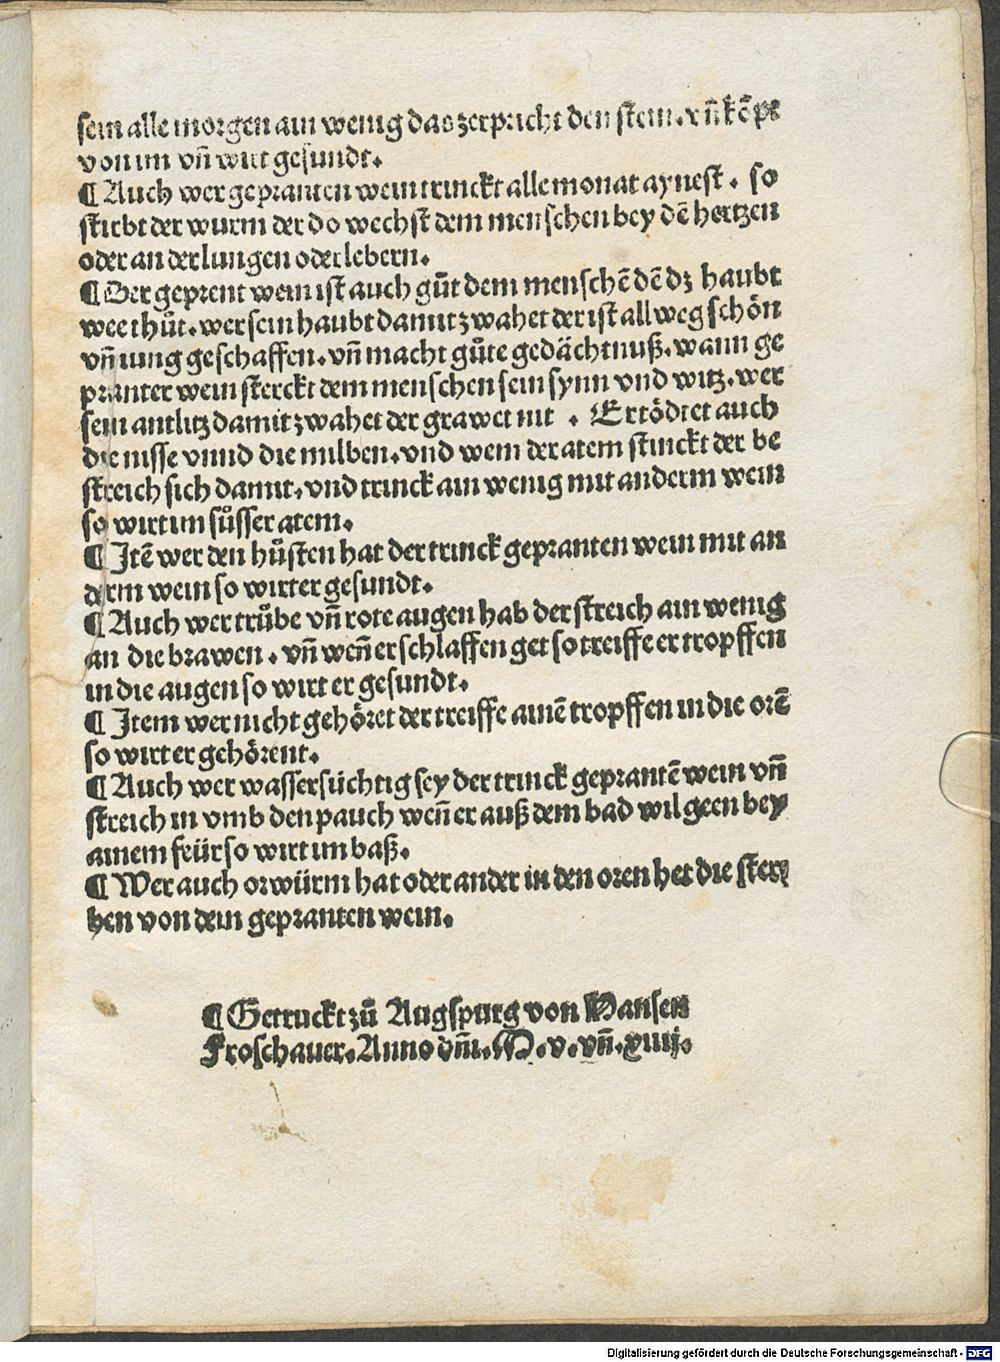 sein alle morgen ain wenig das zerpricht den stein. vñ kẽpt
von im vñ wirt gesundt.
¶ Auch wer gepranten wein trinckt alle monat aynest. so
stirbt der wurm der do wechst dem menschen bey dẽ hertzen
oder an der lungen oder lebern.
¶ Der geprent wein ist auch gůt dem menschẽ dẽ dz haubt
wee thůt. wer sein haubt damit zwahet der ist all weg schön
vñ iung geschaffen. vñ macht gůte gedächtnuß. wann ge
pranter wein sterckt dem menschen sein synn vnd witz. wer
sein antlitz damit zwahet der grawet nit. Er tödtet auch
die nisse vnnd die milben. vnd wem der atem stinckt der be
streich sich damit. vnd trinck ain wenig mit anderm wein
so wirt im sůsser atem.
¶ Jtẽ wer den hůsten hat der trinck gepranten wein mit an
derm wein so wirt er gesundt.
¶ Auch wer trůbe vñ rote augen hab der streich ain wenig
an die brawen. vñ weñ er schlaffen get so treiffe er tropffen
in die augen so wirt er gesundt.
¶ Jtem wer nicht gehöret der treiffe ainẽ tropffen in die orẽ
so wirt er gehörent.
¶ Auch wer wassersüchtig sey der trinck geprantẽ wein vñ
streich in vmb den pauch weñ er auß dem bad wil geen bey
ainem feür so wirt im baß.
¶ Wer auch orwürm hat oder ander in den oren het die ster
ben von dem gepranten wein.
¶ Getruckt zů Augspurg von Hansen
Froschauer. Anno dñi. M. v. vñ. xiiij.
Digitalisierung gefördert durch die Deutsche Forschungsgemeinschaft - DFG